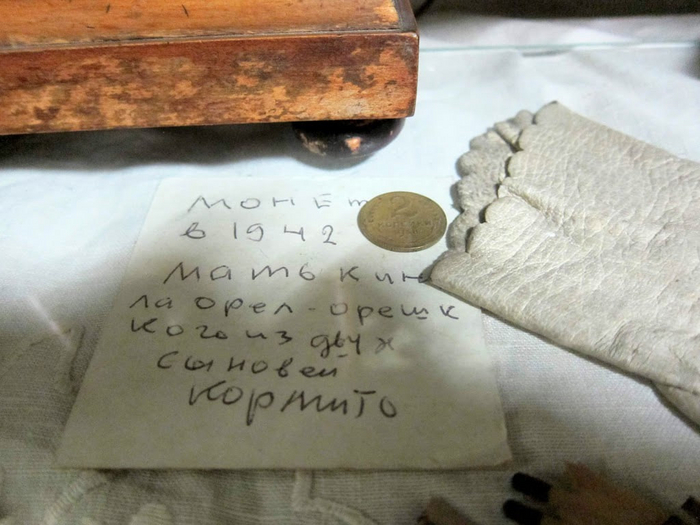 МОНЕТ
В 1942
Мать кин
ла орел-орешк
кого из двух
сыновей
кормить
2